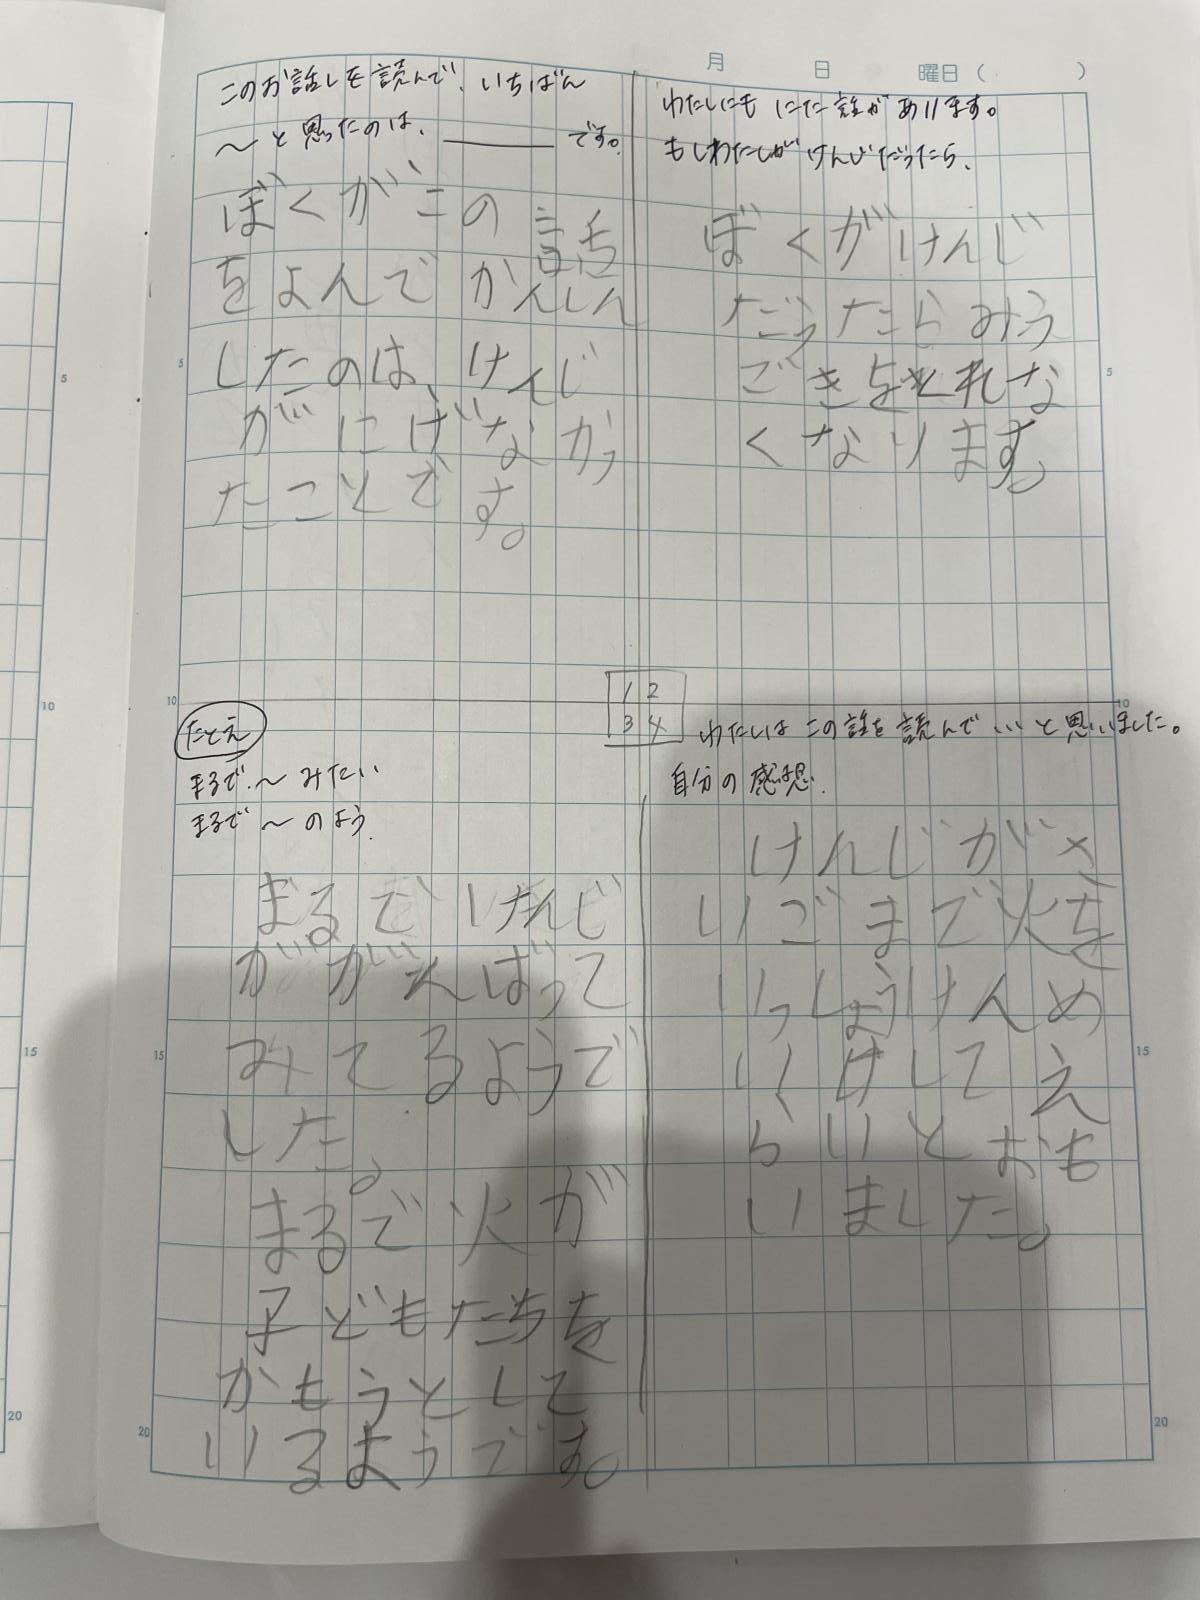 月 日 曜日( )
このお話しを読んで、いちばん
～と思ったのは、 です。
ぼくがこの話
をよんでかんしん
したのは、けんじ
がにげなかっ
たことです。
わたしにも にた話が あります。
もしわたしが けんじだったら、
ぼくがけんじ
だったらみう
ごきをとれな
くなります。
1 2
3 4
たとえ
まるで、～ みたい
まるで ～ のよう
まるでけんじ
ががんばって
みてるようで
した。
まるで火が
子どもたちを
かもうとして
いるようです。
わたしは この話を 読んで ・・・と思いました。
自分の感想.
けんじがさ
いごまで火を
いっしょうけんめ
いけして え
らいとおも
いました。
5
10
15
20
5
10
15
20
5
10
15
20